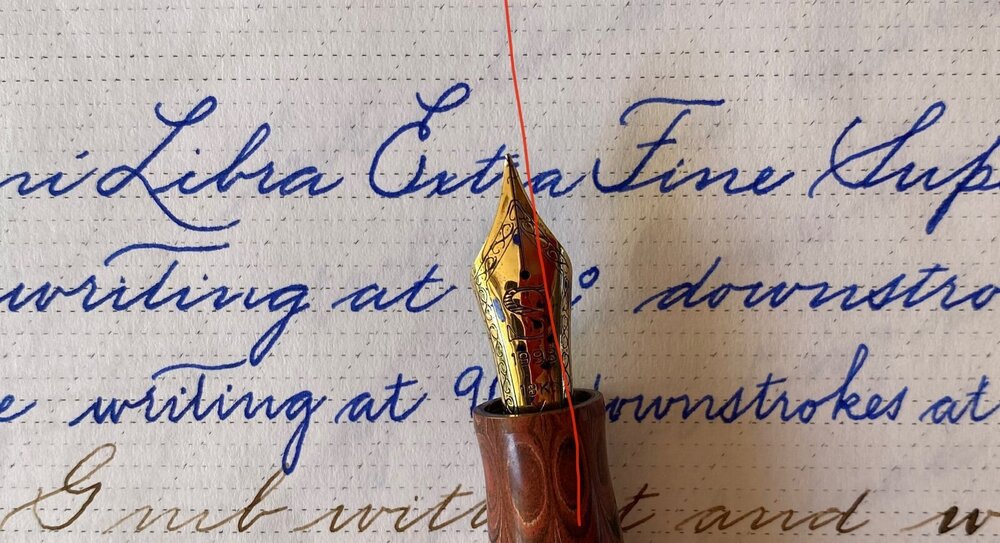 ni Libra Extra Fine Sup
writing at ° downstro
e writing at 9 ownstrokes at
G nib with t and w